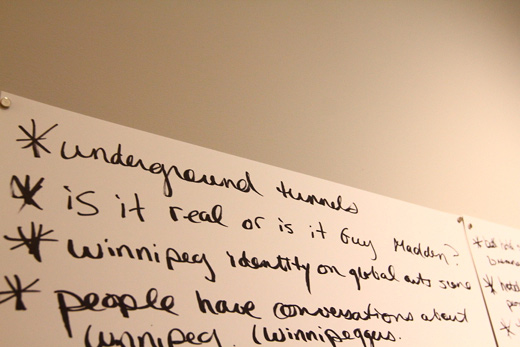 * underground tunnels
* is it real or is it Guy Madden?
* winnipeg identity on global arts scene
* people have conversations about
winnipeg. (winnipeggers.
*
* hotel
*